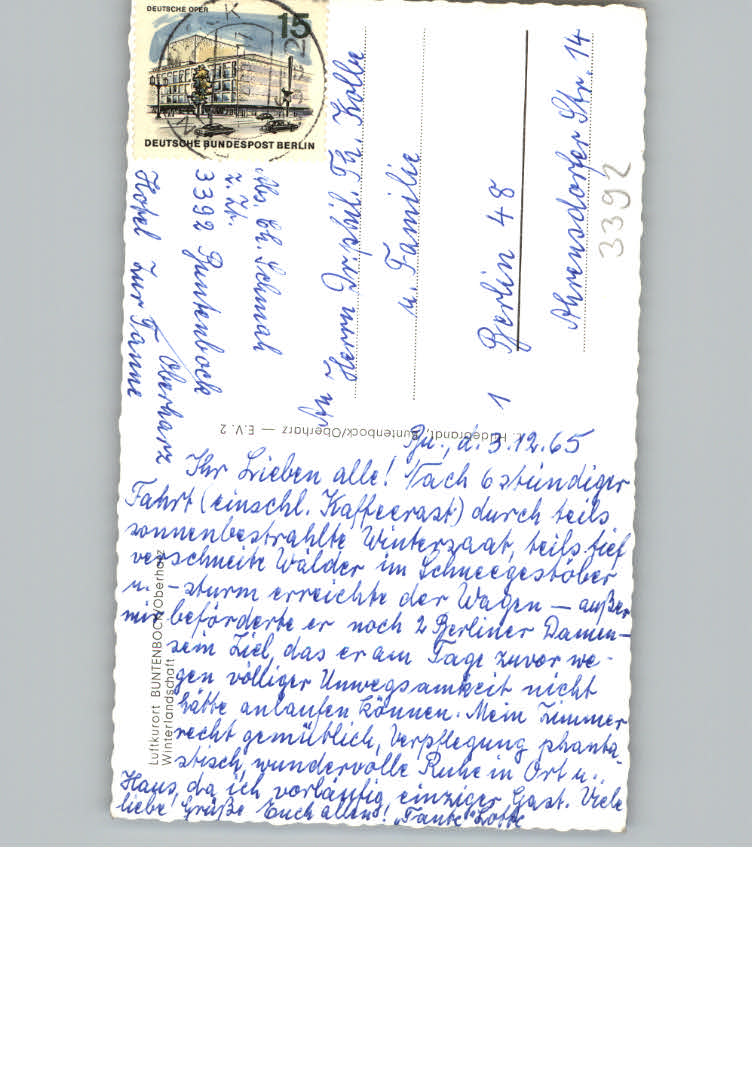 DEUTSCHE OPER
15
DEUTSCHE BUNDESPOST BERLIN
Abs. Ch. Schmah
z. Zt.
3392 Buntenbock
Oberharz
Hotel zur Tanne
An
Herrn Dr. phil. Th. Kolbe
u. Familie
1 Berlin 48
Ahrensdorfer Str. 14
3392
Hildebrandt, Buntenbock/Oberharz — E.V. 2
Luftkurort BUNTENBOCK/Oberharz
Winterlandschaft
Bu., d. 3.12.65
Ihr Lieben alle! Nach 6 stündiger
Fahrt (einschl. Kaffeerast) durch teils
sonnenbestrahlte Wintersaat, teils tief
verschneite Wälder im Schneegestöber
u. -sturm erreichte der Wagen — außer
mir beförderte er noch 2 Berliner Damen —
sein Ziel, das er am Tage zuvor we-
gen völliger Unwegsamkeit nicht
hätte anlaufen können. Mein Zimmer
recht gemütlich, Verpflegung phanta-
stisch, wundervolle Ruhe in Ort u.
Haus, da ich vorläufig einziger Gast. Viele
liebe Grüße Euch allen! „Tante" Lotte